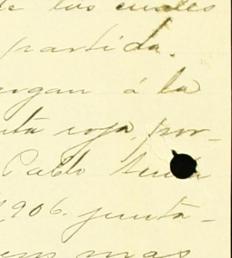 de los cuales
partida.
rogan á la
ta roja, por-
Pablo
1906. junta-
mas